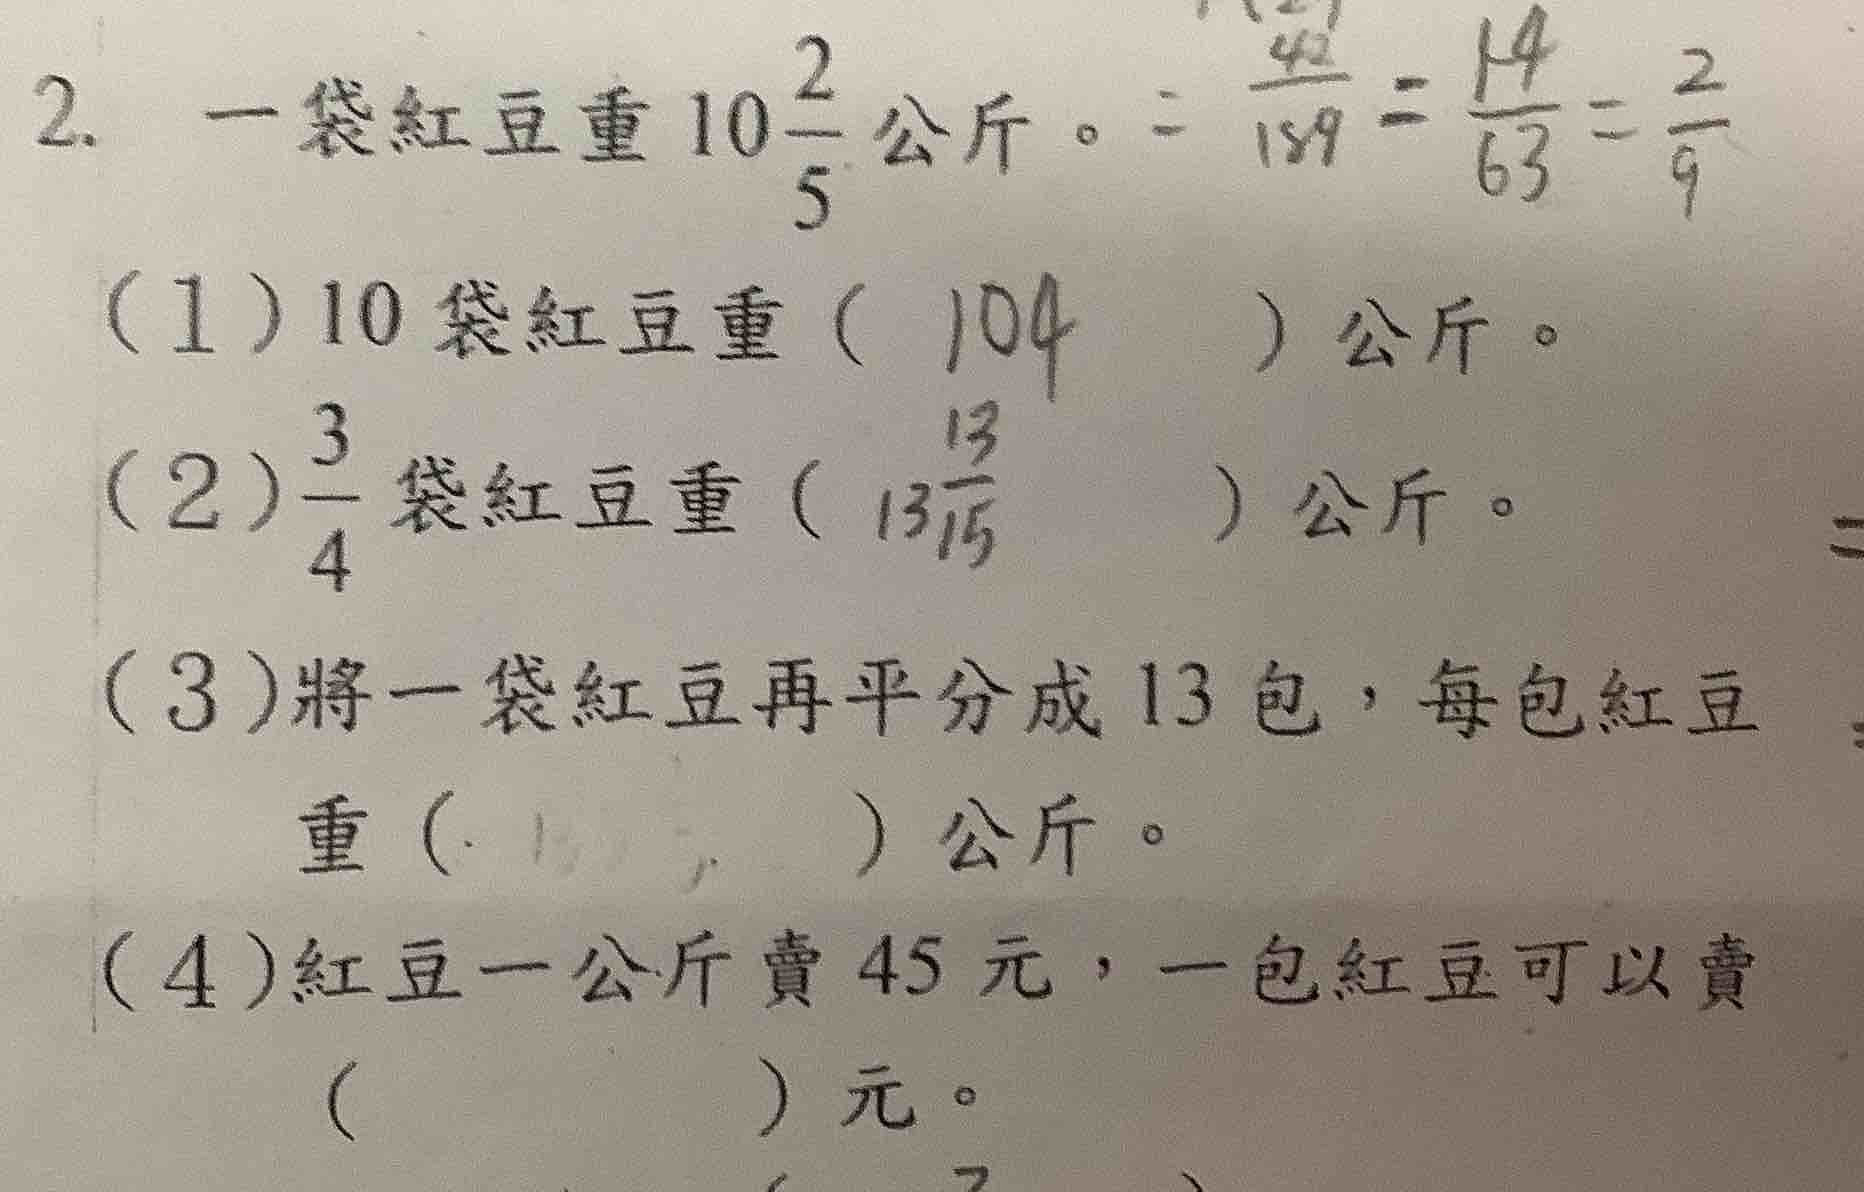 2. 一袋紅豆重 10 2/5 公斤。= 42/189 = 14/63 = 2/9
(1) 10 袋紅豆重( 104 )公斤。
(2) 3/4 袋紅豆重( 13 13/15 )公斤。
(3)將一袋紅豆再平分成 13 包,每包紅豆
重( )公斤。
(4)紅豆一公斤賣 45 元,一包紅豆可以賣
( )元。